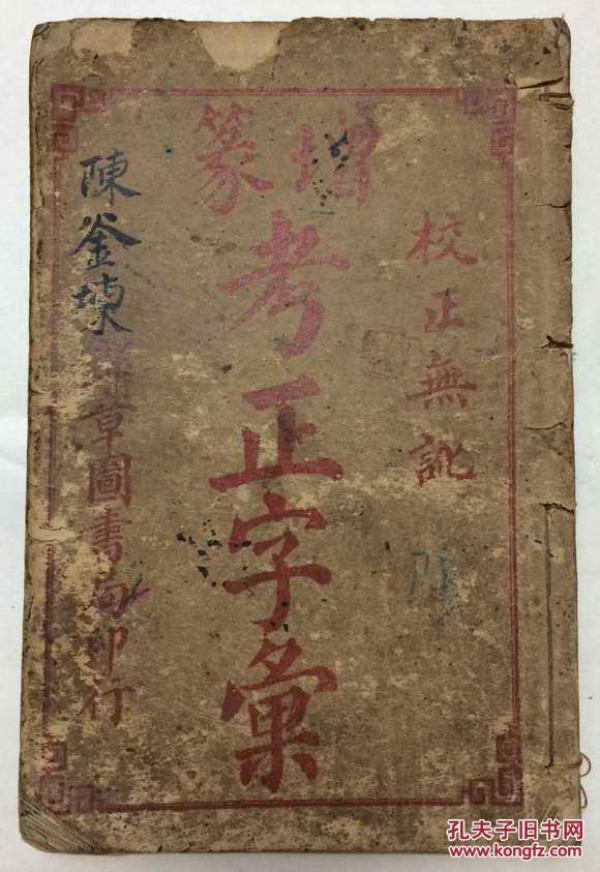 校正無訛
增篆
考正字彙
陳釜堜
章圖書局印行
孔夫子旧书网
www.kongfz.com